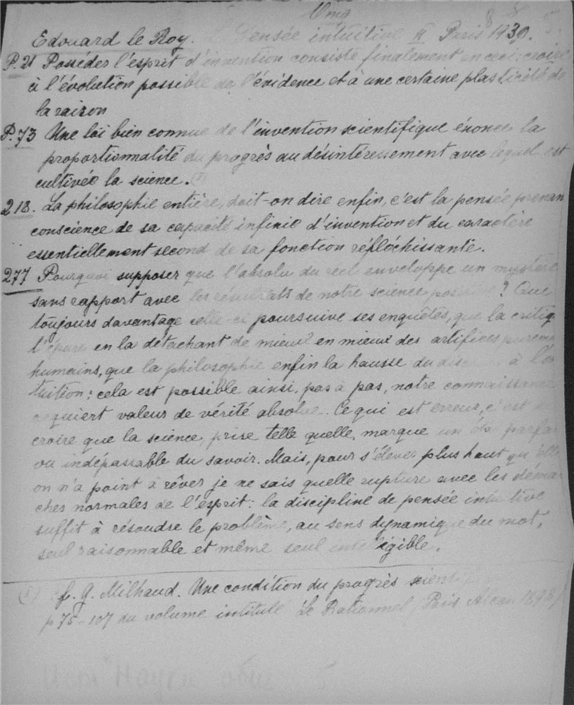 Edouard le Roy. Pensée intuitive II Paris 1930.
P. 21 Posséder l'esprit d'invention consiste finalement en ceci: croire
à l'évolution possible de l'évidence et à une certaine plasticité de
la raison
P. 73 Une loi bien connue de l'invention scientifique énonce la
proportionnalité du progrès au désintéressement avec lequel est
cultivée la science. (1)
218. La philosophie entière, doit-on dire enfin, c'est la pensée prenan
conscience de sa capacité infinie d'invention et du caractère
essentiellement second de sa fonction réfléchissante.
277 Pourquoi supposer que l'absolu du réel enveloppe un mystère
sans rapport avec les résultats de notre science ? Que
toujours davantage celle-ci poursuive ses enquêtes, que la critiq
l'épure en la détachant de mieux en mieux des artifices purem
humains, que la philosophie enfin la hausse du à l'in
tuition: cela est possible ainsi, pas à pas, notre connaissance
acquiert valeur de vérité absolue. Ce qui est erreur, c'est
croire que la science, prise telle quelle, marque un parfai
ou indépassable du savoir. Mais, pour s'élever plus haut qu'elle
on n'a point à rêver je ne sais quelle rupture avec les démar
ches normales de l'esprit: la discipline de pensée intuitive
suffit à résoudre le problème, au sens dynamique du mot,
seul raisonnable et même seul intelligible.
(1) cf. G. Milhaud. Une condition du progrès scient
p 75-107 du volume intitulé Le Rationnel Paris Alcan 1898